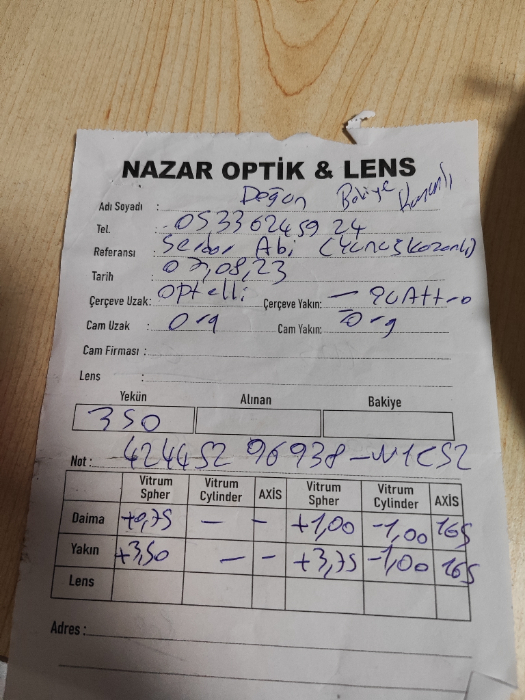 NAZAR OPTİK & LENS
Adı Soyadı : Doğan Bakiye Kozanlı
Tel. : 0533 6245924
Referansı : Serdar Abi (Yunus Kozanlı)
Tarih : 07,08,23
Çerçeve Uzak: optelli Çerçeve Yakın: — quattro
Cam Uzak : org Cam Yakın: org
Cam Firması :
Lens :
Yekün Alınan Bakiye
350
Not : 424452 96938-N1C52
Vitrum Spher Vitrum Cylinder AXİS Vitrum Spher Vitrum Cylinder AXİS
Daima +0,75 — — +1,00 -1,00 165
Yakın +3,50 — — +3,75 -1,00 165
Lens
Adres :